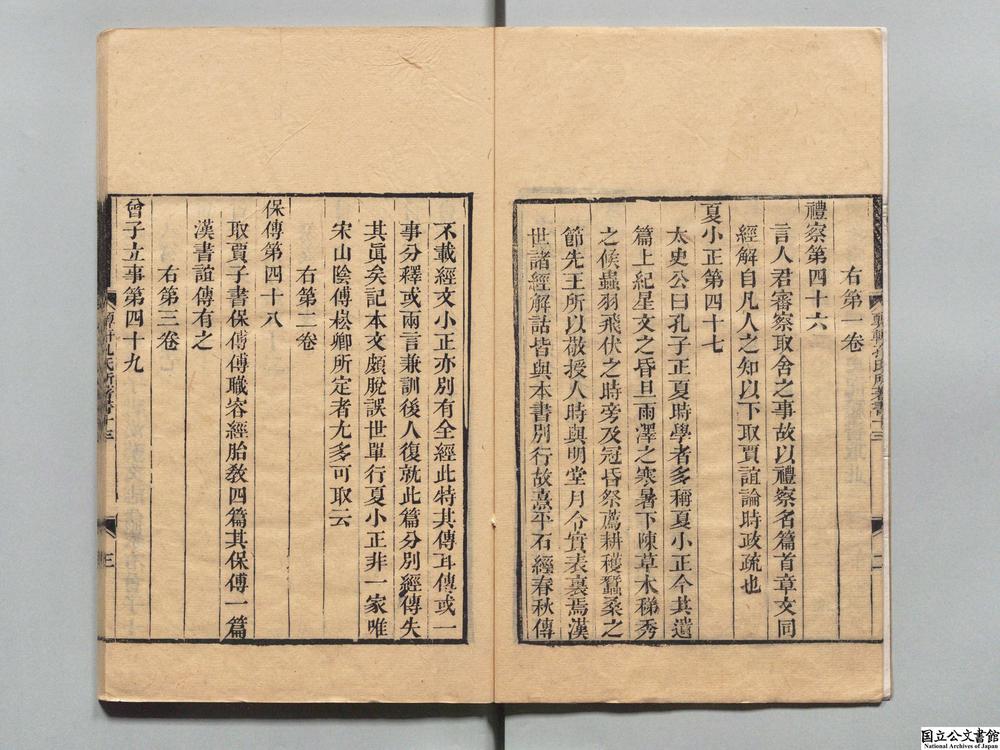 右第一卷
禮察第四十六
言人君審察取舍之事故以禮察名篇首章文同
經解自凡人之知以下取賈誼論時政疏也
夏小正第四十七
太史公曰孔子正夏時學者多稱夏小正今其遺
篇上紀星文之昏旦雨澤之寒暑下陳草木稊秀
之候蟲羽飛伏之時旁及冠昏祭薦耕穫蠶桑之
節先王所以敬授人時與明堂月令實表裏焉漢
世諸經解詁皆與本書別行故熹平石經春秋傳
不載經文小正亦別有全經此特其傳耳傳或一
事分釋或兩言兼訓後人復就此篇分別經傳失
其眞矣記本文頗脫誤世單行夏小正非一家唯
宋山陰傅崧卿所定者尢多可取云
右第二卷
保傅第四十八
取賈子書保傅傅職容經胎敎四篇其保傅一篇
漢書誼傳有之
右第三卷
曾子立事第四十九
顨軒孔氏所著書十三
二
顨軒孔氏所著書十三
三
国立公文書館
National Archives of Japan